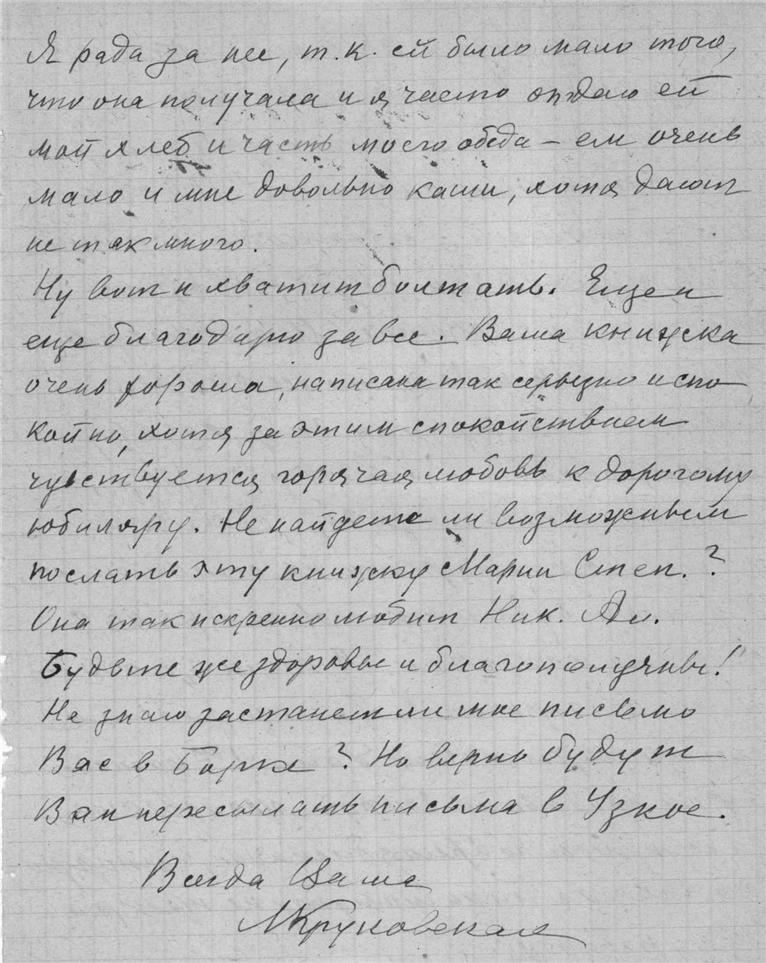 Я рада за нее, т.к. ей было мало того,
что она получала и я часто отдаю ей
мой хлеб и часть моего обеда – ем очень
мало и мне довольно каши, хотя дают
не так много.
Ну вот и хватит болтать. Еще и
еще благодарю за все. Ваша книжка
очень хороша, написана так серьезно и спо-
койно, хотя за этим спокойствием
чувствуется горячая любовь к дорогому
юбиляру. Не найдете ли возможным
послать эту книжку Марии Степ.?
Она так искренно любит Ник. Ал.
Будьте же здоровы и благополучны!
Не знаю застанет ли мое письмо
Вас в Борке? Но верно будут
Вам пересылать письма в Узкое.
Всегда Ваша
МКруковская